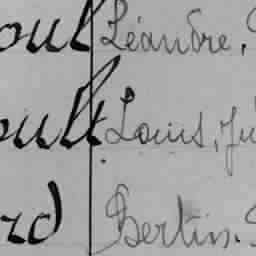 oul Léandre,
oult Louis, Ju
rd Bertin.